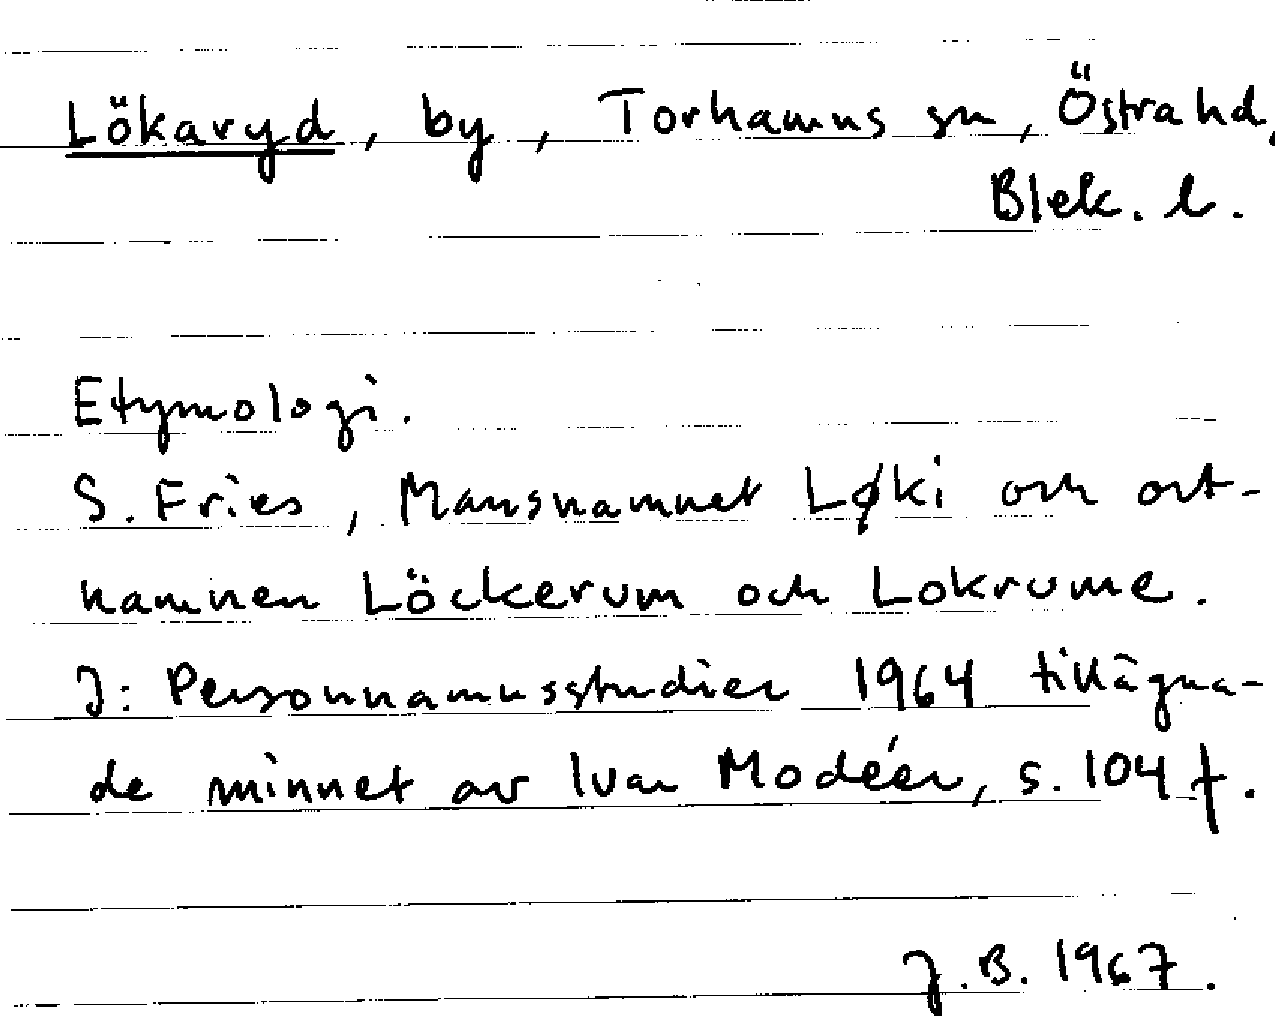 Lökaryd, by, Torhamns sn, Östra hd,
Blek. l.
Etymologi.
S. Fries, Mansnamnet Løki och ort-
namnen Löckerum och Lokrume.
I: Personnamnsstudier 1964 tillägna-
de minnet av Ivar Modéer, s. 104 f.
J. B. 1967.